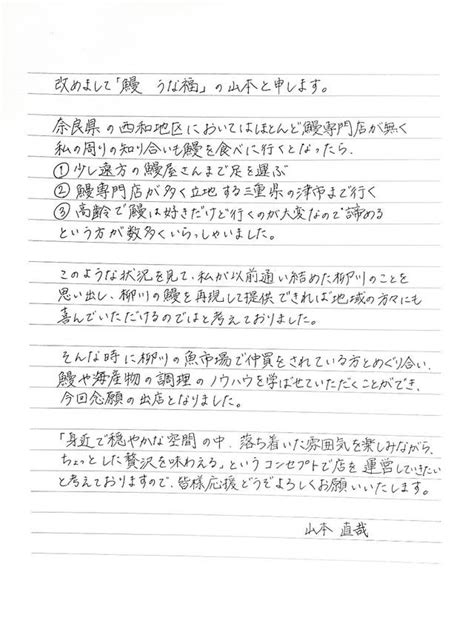 改めまして「鰻　うな福」の山本と申します。
奈良県の西和地区においてはほとんど鰻専門店が無く
私の周りの知り合いも鰻を食べに行くとなったら、
①少し遠方の鰻屋さんまで足を運ぶ
②鰻専門店が多く立地する三重県の津市まで行く
③高齢で鰻は好きだけど行くのが大変なので諦める
という方が数多くいらっしゃいました。
このような状況を見て、私が以前通い詰めた柳川のことを
思い出し、柳川の鰻を再現して提供できれば地域の方々にも
喜んでいただけるのではと考えておりました。
そんな時に柳川の魚市場で仲買をされている方とめぐり合い、
鰻や海産物の調理のノウハウを学ばせていただくことができ、
今回念願の出店となりました。
「身近で穏やかな空間の中、落ち着いた雰囲気を楽しみながら、
ちょっとした贅沢を味わえる」というコンセプトで店を運営していきたい
と考えておりますので、皆様応援どうぞよろしくお願いいたします。
山本 直哉